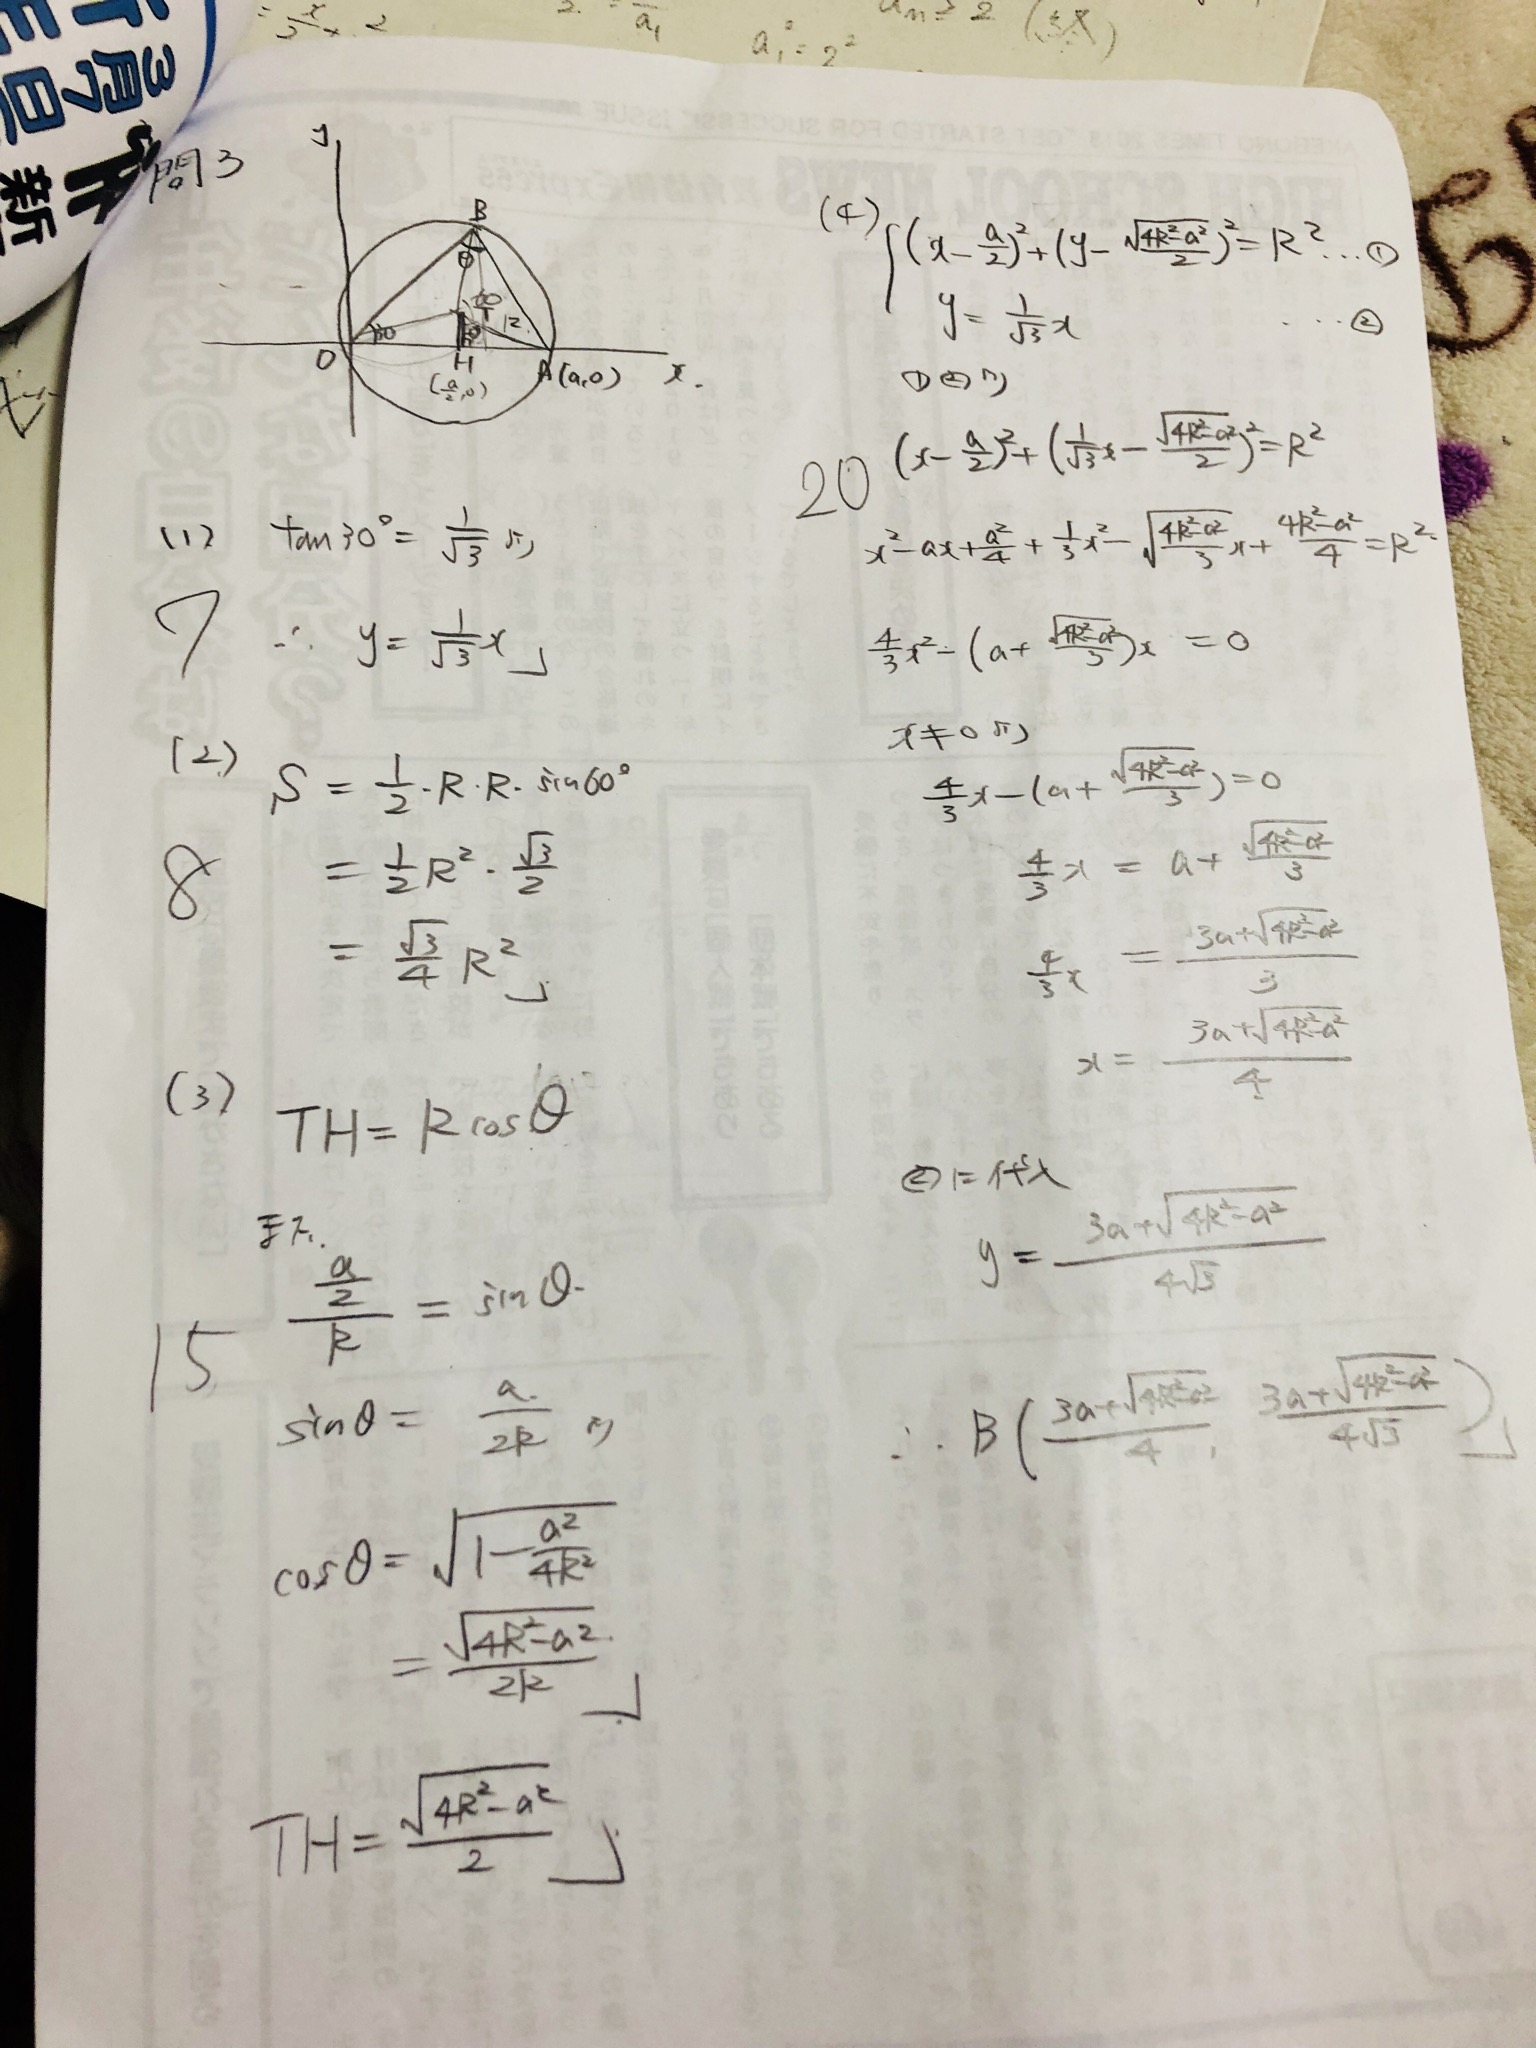 問3
y
B
θ
60
R
30
θ
O
H
A(a,0)
x.
(a/2,0)
(1) tan30°= 1/√3 より
7
∴ y= 1/√3 x
(2) S = 1/2・R・R・sin60°
8
= 1/2 R²・√3/2
= √3/4 R²
(3) TH= Rcosθ
また.
(a/2)/R = sinθ.
15
sinθ= a/2R より
cosθ= √(1-a²/4R²)
= √(4R²-a²)/2R
TH= √(4R²-a²)/2
(4) {(x-a/2)²+(y-√(4R²-a²)/2)²=R² …①
y= 1/√3 x …②
①②より
20
(x-a/2)²+(1/√3 x-√(4R²-a²)/2)²=R²
x²-ax+a²/4+1/3x²-√((4R²-a²)/3)x+(4R²-a²)/4=R²
4/3x²-(a+√(4R²-a²)/3)x =0
x≠0より
4/3x-(a+√(4R²-a²)/3)=0
4/3x = a+√(4R²-a²)/3
4/3x = (3a+√(4R²-a²))/3
x= (3a+√(4R²-a²))/4
②に代入
y= (3a+√(4R²-a²))/4√3
∴ B((3a+√(4R²-a²))/4, (3a+√(4R²-a²))/4√3)